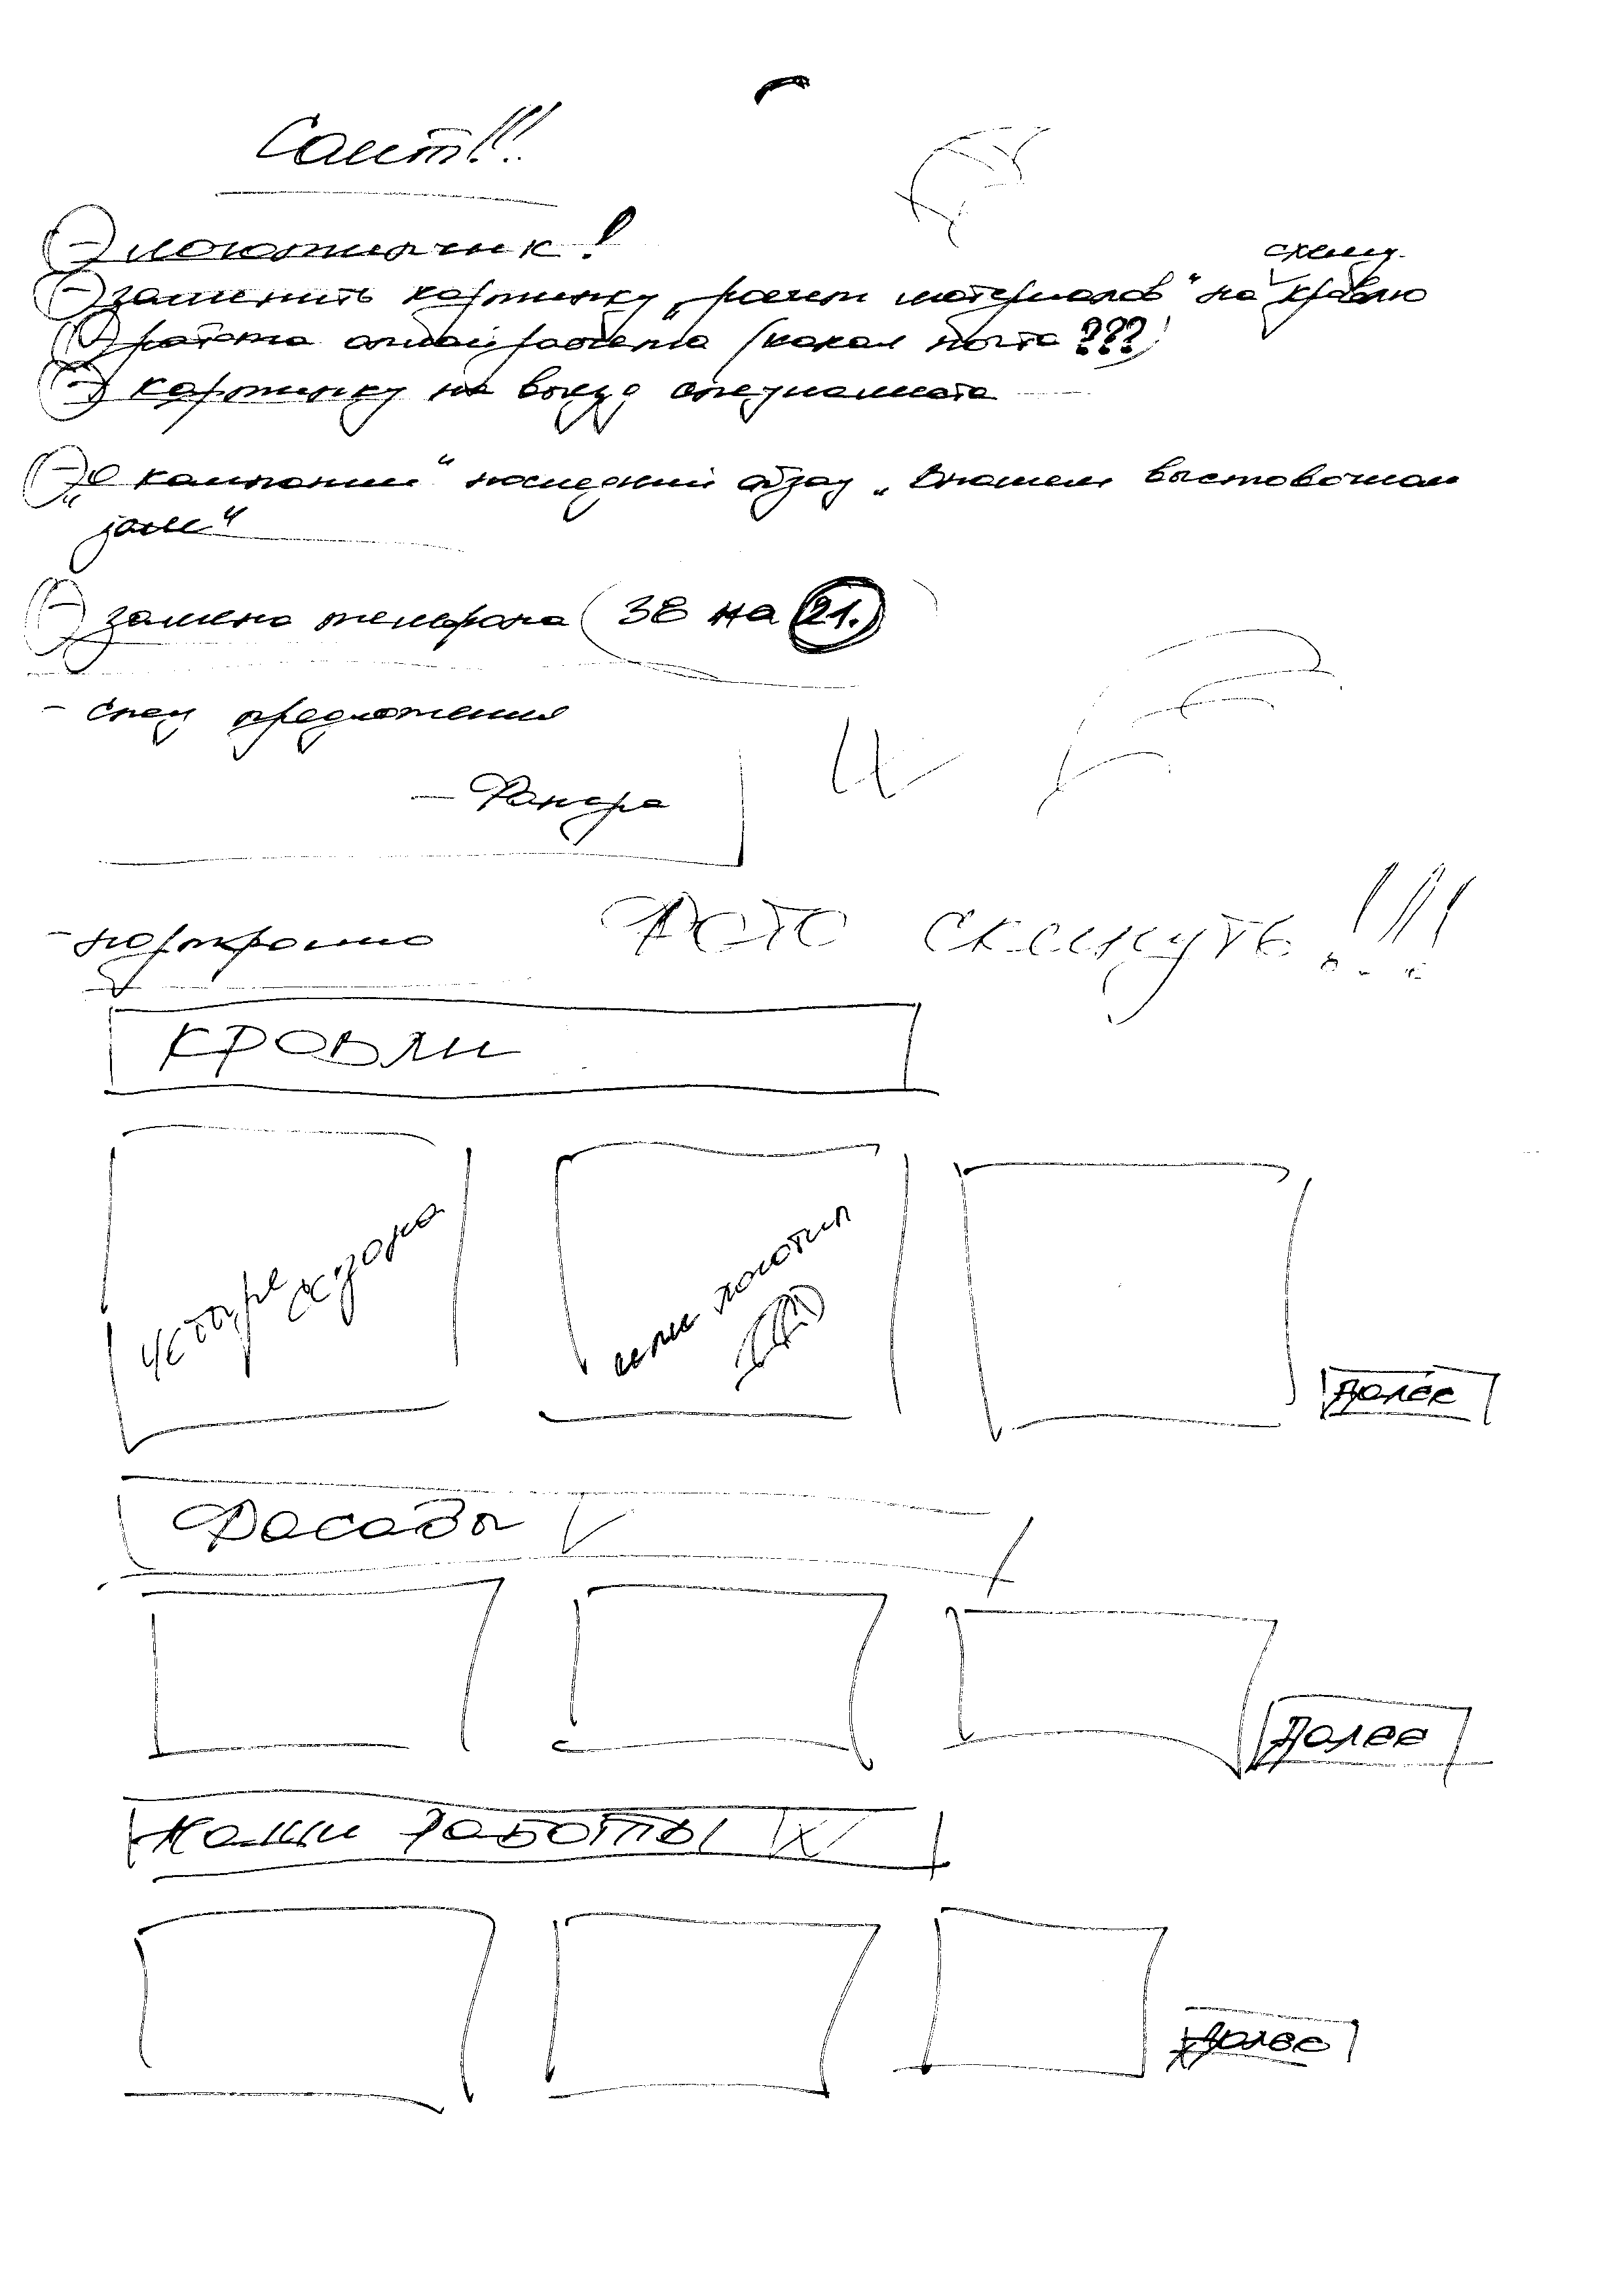 Сайт!!!
- логотипчик!
схему
- заменить картинку „расчет материалов“ на кровлю
- работа онлайн расчета (какая почта ???)
- картинку на выезд специалиста
- „О компании“ последний абзац „В нашем выставочном
зале“
- замена телефона (38 на 21.)
- спец предложения
- Фанера
- портфолио
Фото скинуть!!!
КРОВЛИ
четыре сезона
или логотип
Далее
Фасады
Далее
Наши работы
Далее